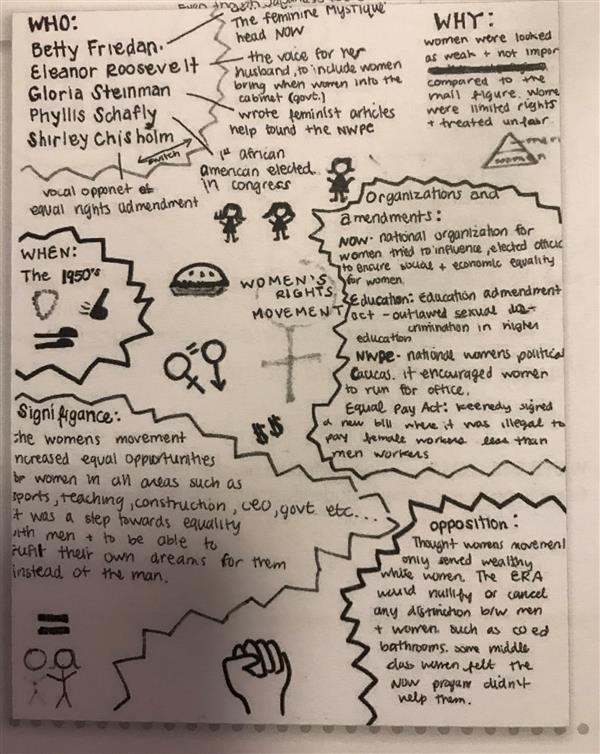 WHO:
Betty Friedan.
Eleanor Roosevelt
Gloria Steinman
Phyllis Schafly
Shirley Chisholm
switch
The Feminine Mystique
head NOW
the voice for her
husband, to include women
bring when women into the
cabinet (govt.)
wrote feminist articles
help found the NWPC
1st african
american elected
in congress
vocal opponet of
equal rights admendment
WHY:
women were looked
as weak + not impor
compared to the
mail figure. Wome
were limited rights
+ treated unfair.
men
women
WHEN:
The 1950's
WOMEN'S
RIGHTS
MOVEMENT
$$
Organizations and
amendments:
NOW- national organization for
women tried to influence, elected officic
to ensure social + economic equality
for women.
Education: Education admendment
act - outlawed sexual dis-
crimination in higher
education
NWPC- national womens political
caucas. it encouraged women
to run for office.
Equal Pay Act: Keenedy signed
a new bill where it was illegal to
pay female workers less than
men workers
Signifigance:
the womens movement
increased equal opportunities
for women in all areas such as
sports, teaching, construction, ceo, govt. etc....
it was a step towards equality
with men + to be able to
fulfil their own dreams for them
instead of the man.
opposition:
Thought womens movement
only served wealthy
white women. The ERA
would nullify or cancel
any distinction b/w men
+ women. such as co ed
bathrooms. some middle
class women felt the
NOW program didn't
help them.